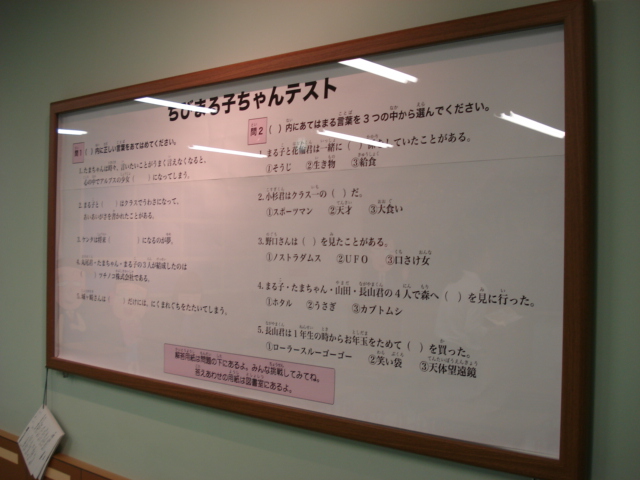 ちびまる子ちゃんテスト
問1 ( )内に正しい言葉をあてはめてください。
1. たまちゃんは時々、言いたいことがうまく言えなくなると、
心の中でアルプスの少女( )になってしまう。
2. まる子と( )はクラスでうわさになって、
あいあいがさを書かれたことがある。
3. ケンタは将来( )になるのが夢。
4. 丸尾君・たまちゃん・まる子の3人が結成したのは
( )ツチノコ株式会社である。
( )だけには、にくまれぐちをたたいてしまう。
問2 ( )内にあてはまる言葉を3つの中から選んでください。
1. まる子と花輪君は一緒に( )していたことがある。
①そうじ ②生き物 ③給食
2. 小杉君はクラス一の( )だ。
①スポーツマン ②天才 ③大食い
3. 野口さんは( )を見たことがある。
①ノストラダムス ②UFO ③口さけ女
4. まる子・たまちゃん・山田・長山君の4人で森へ( )を見に行った。
①ホタル ②うさぎ ③カブトムシ
5. 長山君は1年生の時からお年玉をためて( )を買った。
①ローラースルーゴーゴー ②笑い袋 ③天体望遠鏡
解答用紙は問題の下にあるよ。みんな挑戦してみてね。
答えあわせの用紙は図書室にあるよ。